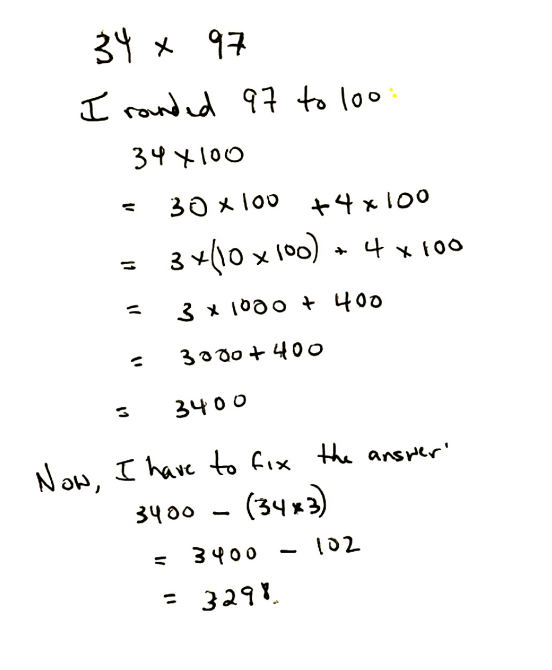 34 × 97
I rounded 97 to 100:
34 × 100
= 30 × 100 + 4 × 100
= 3 × (10 × 100) + 4 × 100
= 3 × 1000 + 400
= 3000 + 400
= 3400
Now, I have to fix the answer:
3400 - (34 × 3)
= 3400 - 102
= 3298.